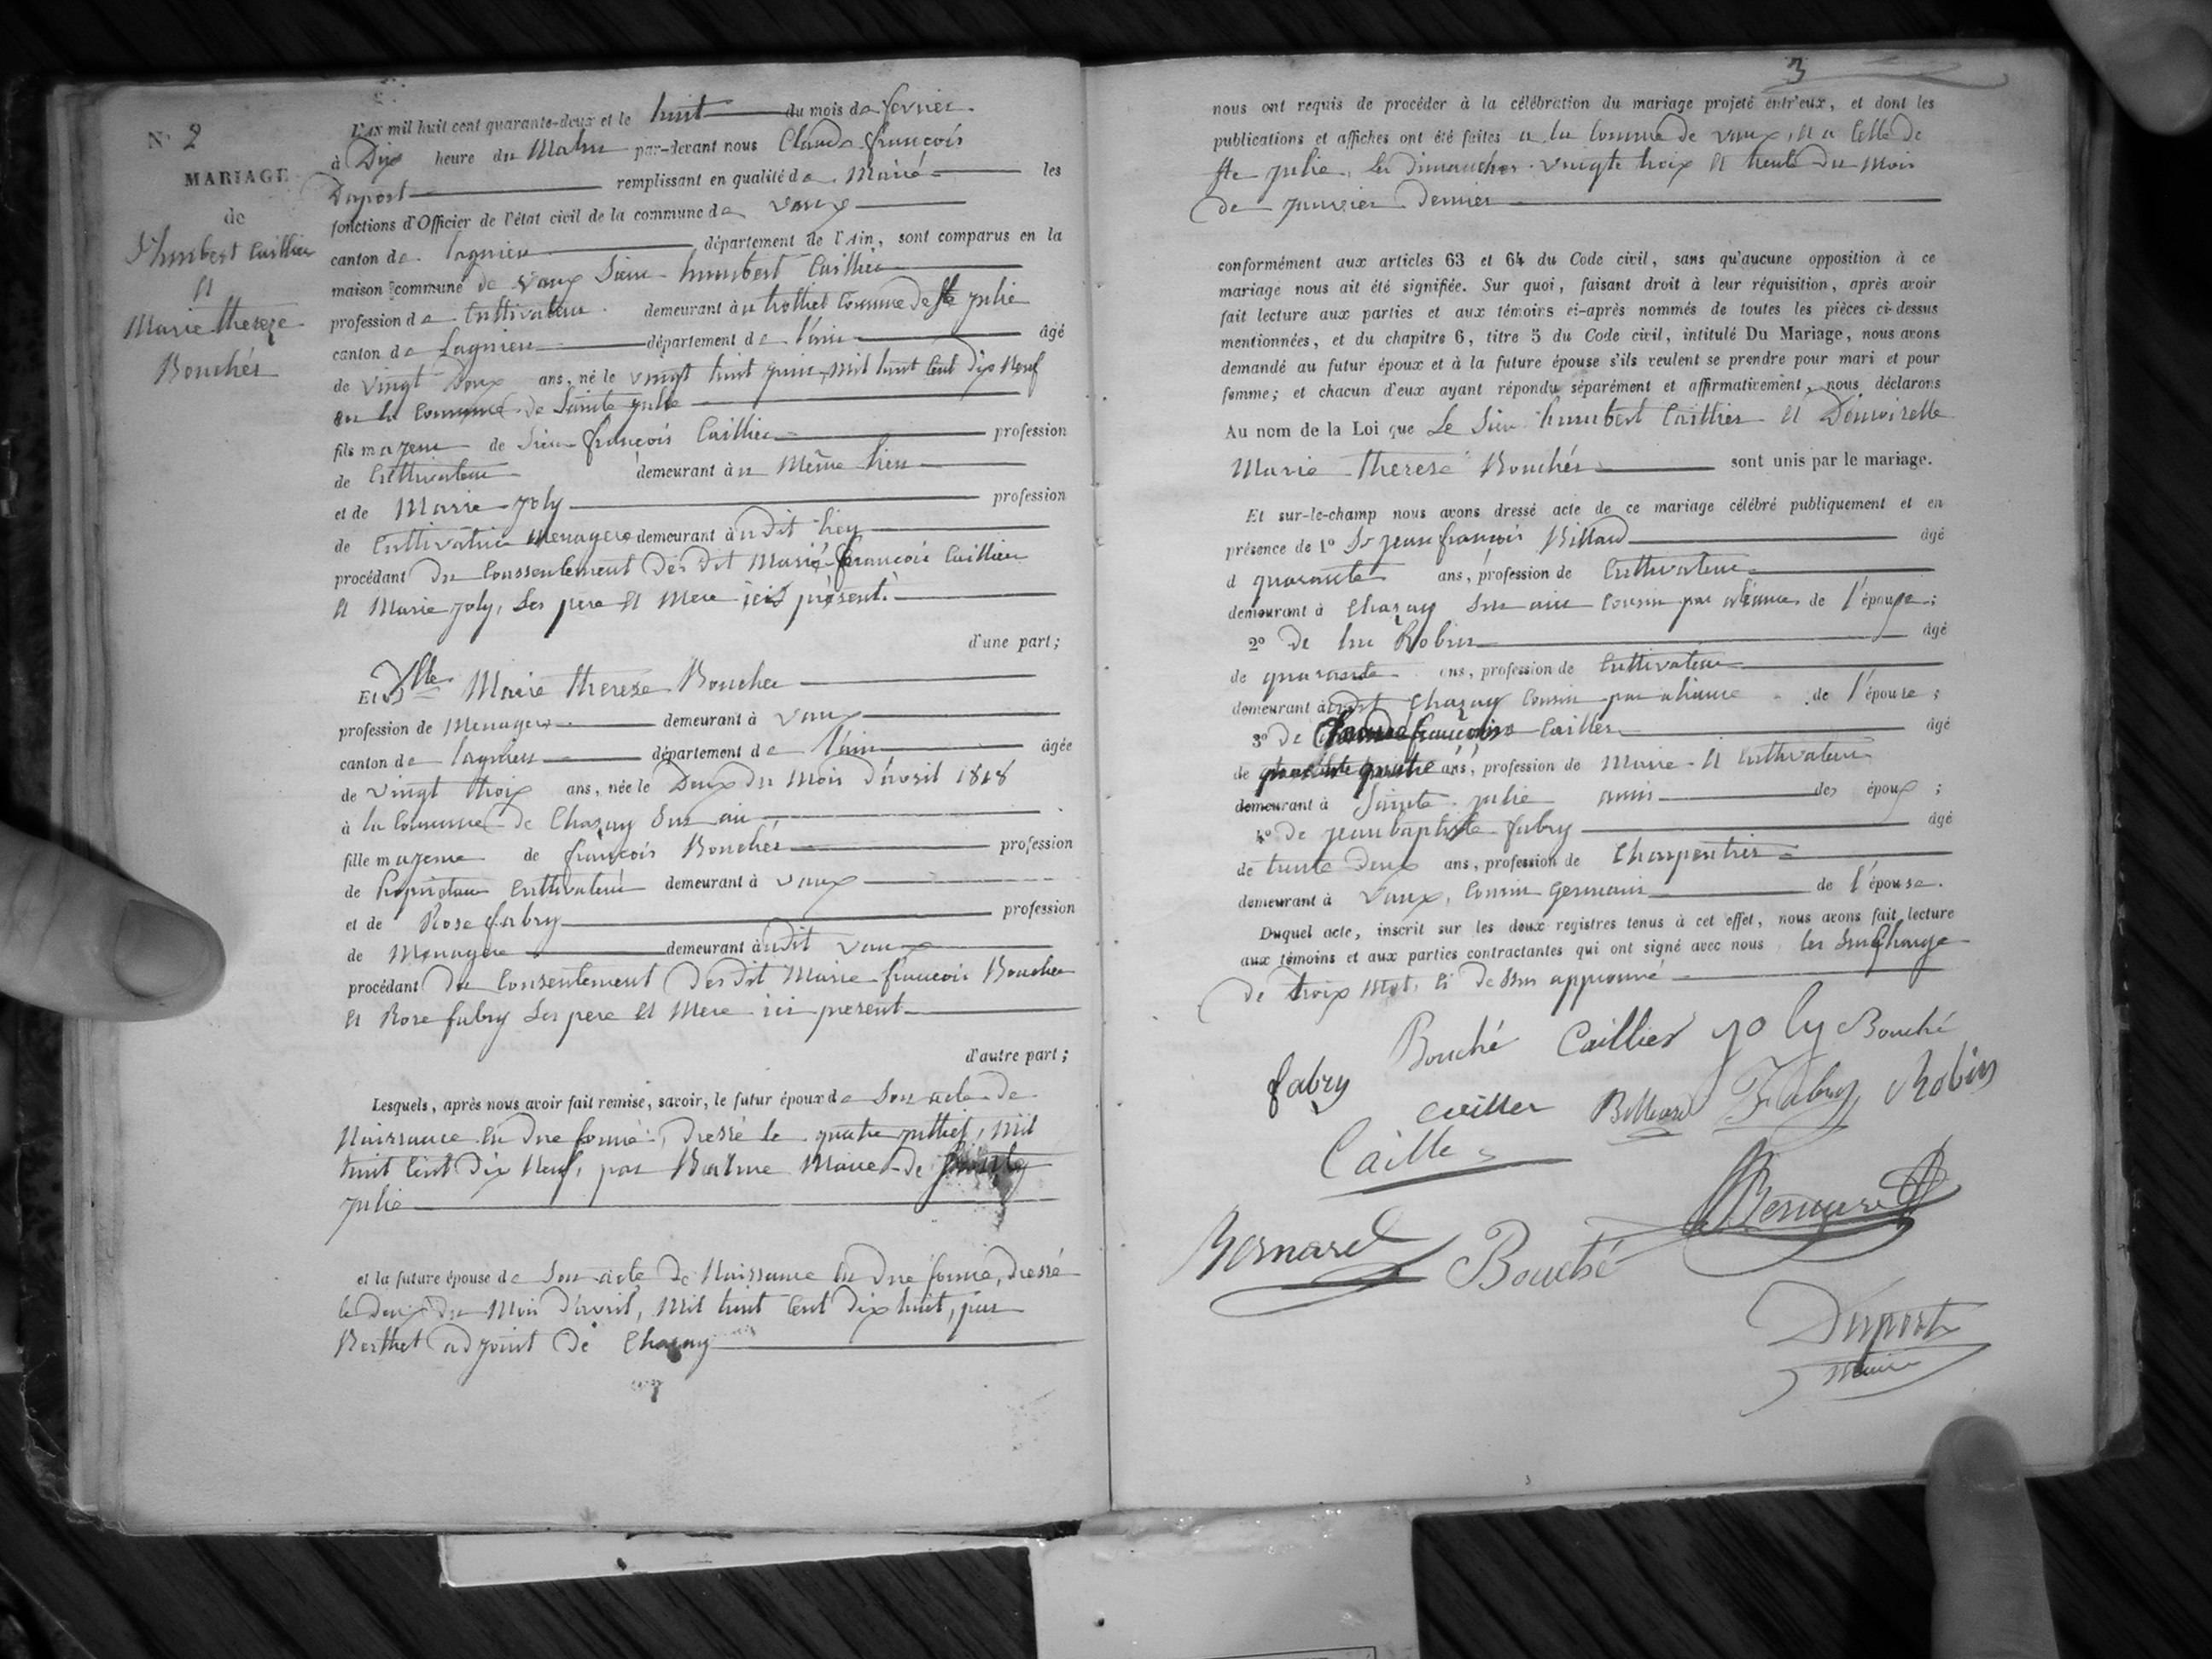 N° 2
MARIAGE
de
Sr humbert Caillier
et
Marie therese
Bouchés
L'an mil huit cent quarante-deux et le huit du mois de fevrier
à Dix heure du Matin par-devant nous Claude françois
Duport remplissant en qualité de Mairé les
fonctions d'Officier de l'état civil de la commune de vaux
canton de lagnieu département de l'Ain, sont comparus en la
maison commune de vaux Sieur humbert Caillier
profession de Cultivateur demeurant à u trolliet Commune de Ste julie
canton de Lagnieu département de l'ain âgé
de vingt Deux ans, né le vingt huit juin mil huit Cent Dix Neuf
en la Commune de Sainte julie
fils majeur de Sieur françois Caillier profession
de Cultivateur demeurant à u Même lieu
et de Marie joly profession
de Cultivatrice Menagere demeurant à u dit lieu
procédant du Conssentement des dit Marié françois Caillier
et Marie joly, Ses pere et Mere ici présent
d'une part;
Et Dlle Marie therese Bouchér
profession de Menagere demeurant à vaux
canton de lagnieu département de l'ain âgée
de vingt trois ans, née le Deux du Mois d'avril 1818
à la Commune de Chazay Sur ain
fille majeure de françois Bouchés profession
de Propriétaire Cultivateur demeurant à vaux
et de Rose fabry profession
de Menagere demeurant à u dit vaux
procédant du Consentement des dit Marie françois Boucher
et Rose fabry Ses pere et Mere ici present
d'autre part;
Lesquels, après nous avoir fait remise, savoir, le futur époux de Son acte de
Naissance en due forme, dressé le quatre juillet, mil
huit Cent dix Neuf, par Maire de Sainte
julie
et la future épouse de Son acte de Naissance en due forme, dressé
le deux du Mois d'avril, Mil huit Cent Dix huit, par
Berthet adjoint de Chazay
3
nous ont requis de procéder à la célébration du mariage projeté entr'eux, et dont les
publications et affiches ont été faites a la Commune de vaux, et a Celle de
Ste julie, les dimanches vingte troix et trente du Mois
de janvier Dernier
conformément aux articles 63 et 64 du Code civil, sans qu'aucune opposition à ce
mariage nous ait été signifiée. Sur quoi, faisant droit à leur réquisition, après avoir
fait lecture aux parties et aux témoins ci-après nommés de toutes les pièces ci-dessus
mentionnées, et du chapitre 6, titre 5 du Code civil, intitulé Du Mariage, nous avons
demandé au futur époux et à la future épouse s'ils veulent se prendre pour mari et pour
femme; et chacun d'eux ayant répondu séparément et affirmativement, nous déclarons
Au nom de la Loi que Le Sieur humbert Caillier et Demoiselle
Marie therese Bouchés sont unis par le mariage.
Et sur-le-champ nous avons dressé acte de ce mariage célébré publiquement et en
présence de 1° Sr jean françois Billard âgé
d quarante ans, profession de Cultivateur
demeurant à Chazay Sur ain Cousin par aliance de l'épouse;
2° de luc Robin âgé
de quarante ans, profession de Cultivateur
demeurant à u dit Chazay Cousin par aliance de l'épouse;
3° de Claude françois Cailler âgé
de quarante quatre ans, profession de Maire et Cultivateur
demeurant à Sainte julie amis des époux;
4° de jean baptiste fabry âgé
de trente deux ans, profession de Charpentier
demeurant à vaux, Cousin Germain de l'épouse.
Duquel acte, inscrit sur les doux registres tenus à cet effet, nous avons fait lecture
aux témoins et aux parties contractantes qui ont signé avec nous les Surcharge
de trois Mot, Ci dessus approuvé
Bouché Caillier joly Bouché
fabry Cailler Billiard Fabry Robin
Caille
Bernard Bouché Bernard
Duport
Maire